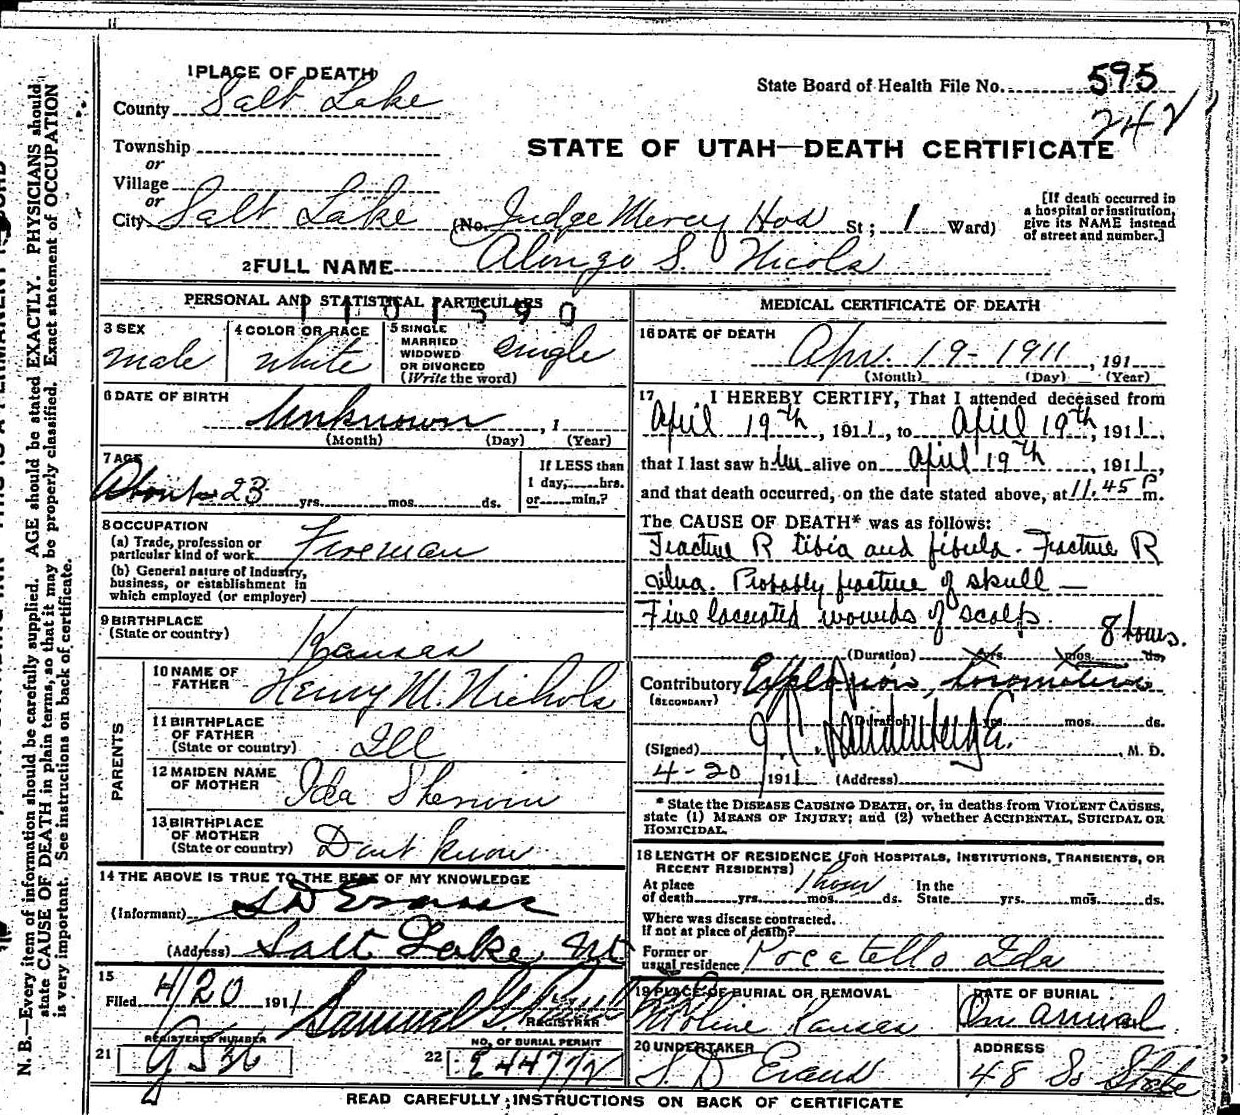 1 PLACE OF DEATH
County Salt Lake
State Board of Health File No. 595
242
Township
or
Village
or
STATE OF UTAH—DEATH CERTIFICATE
City Salt Lake (No. Judge Mercy Hos St; 1 Ward)
[If death occurred in a hospital or institution, give its NAME instead of street and number.]
2 FULL NAME Alonzo S. Nicols
PERSONAL AND STATISTICAL PARTICULARS
1101590
3 SEX
male
4 COLOR OR RACE
white
5 SINGLE
MARRIED
WIDOWED
OR DIVORCED
(Write the word)
single
6 DATE OF BIRTH
Unknown, 1
(Month) (Day) (Year)
7 AGE
About 23 yrs. mos. ds.
If LESS than
1 day, hrs.
or min.?
8 OCCUPATION
(a) Trade, profession or
particular kind of work Fireman
(b) General nature of Industry,
business, or establishment in
which employed (or employer)
9 BIRTHPLACE
(State or country)
Kansas
PARENTS
10 NAME OF
FATHER Henry M. Nichols
11 BIRTHPLACE
OF FATHER
(State or country) Ill
12 MAIDEN NAME
OF MOTHER Ida Sherwin
13 BIRTHPLACE
OF MOTHER
(State or country) Dont know
14 THE ABOVE IS TRUE TO THE BEST OF MY KNOWLEDGE
(Informant) S D Evans
(Address) Salt Lake, Ut
15
Filed 4/20 1911 Samuel G.
REGISTRAR
REGISTERED NUMBER
21 G 536
NO. OF BURIAL PERMIT
22
MEDICAL CERTIFICATE OF DEATH
16 DATE OF DEATH
Apr. 19-1911, 191
(Month) (Day) (Year)
17 I HEREBY CERTIFY, That I attended deceased from
April 19th, 1911, to April 19th, 1911,
that I last saw him alive on April 19th, 1911,
and that death occurred, on the date stated above, at 11.45 P m.
The CAUSE OF DEATH* was as follows:
Fracture R tibia and fibula. Fracture R
ulna. Probably fracture of skull —
Five lacerated wounds of scalp.
8 hours.
(Duration) yrs. mos. ds.
Contributory Explosion, locomotive
(SECONDARY)
(Duration) yrs. mos. ds.
(Signed) M. D.
4-20 1911 (Address)
* State the DISEASE CAUSING DEATH, or, in deaths from VIOLENT CAUSES,
state (1) MEANS OF INJURY; and (2) whether ACCIDENTAL, SUICIDAL OR
HOMICIDAL.
18 LENGTH OF RESIDENCE (FOR HOSPITALS, INSTITUTIONS, TRANSIENTS, OR
RECENT RESIDENTS)
At place
of death yrs. 1 hour mos. ds.
In the
State yrs. mos. ds.
Where was disease contracted.
If not at place of death?
Former or
usual residence Pocatello Ida
19 PLACE OF BURIAL OR REMOVAL
Moline Kansas
DATE OF BURIAL
On arrival
20 UNDERTAKER
S. D Evans
ADDRESS
48 So State
READ CAREFULLY INSTRUCTIONS ON BACK OF CERTIFICATE
N. B.—Every item of information should be carefully supplied. AGE should be stated EXACTLY. PHYSICIANS should
state CAUSE OF DEATH in plain terms, so that it may be properly classified. Exact statement of OCCUPATION
is very important. See instructions on back of certificate.